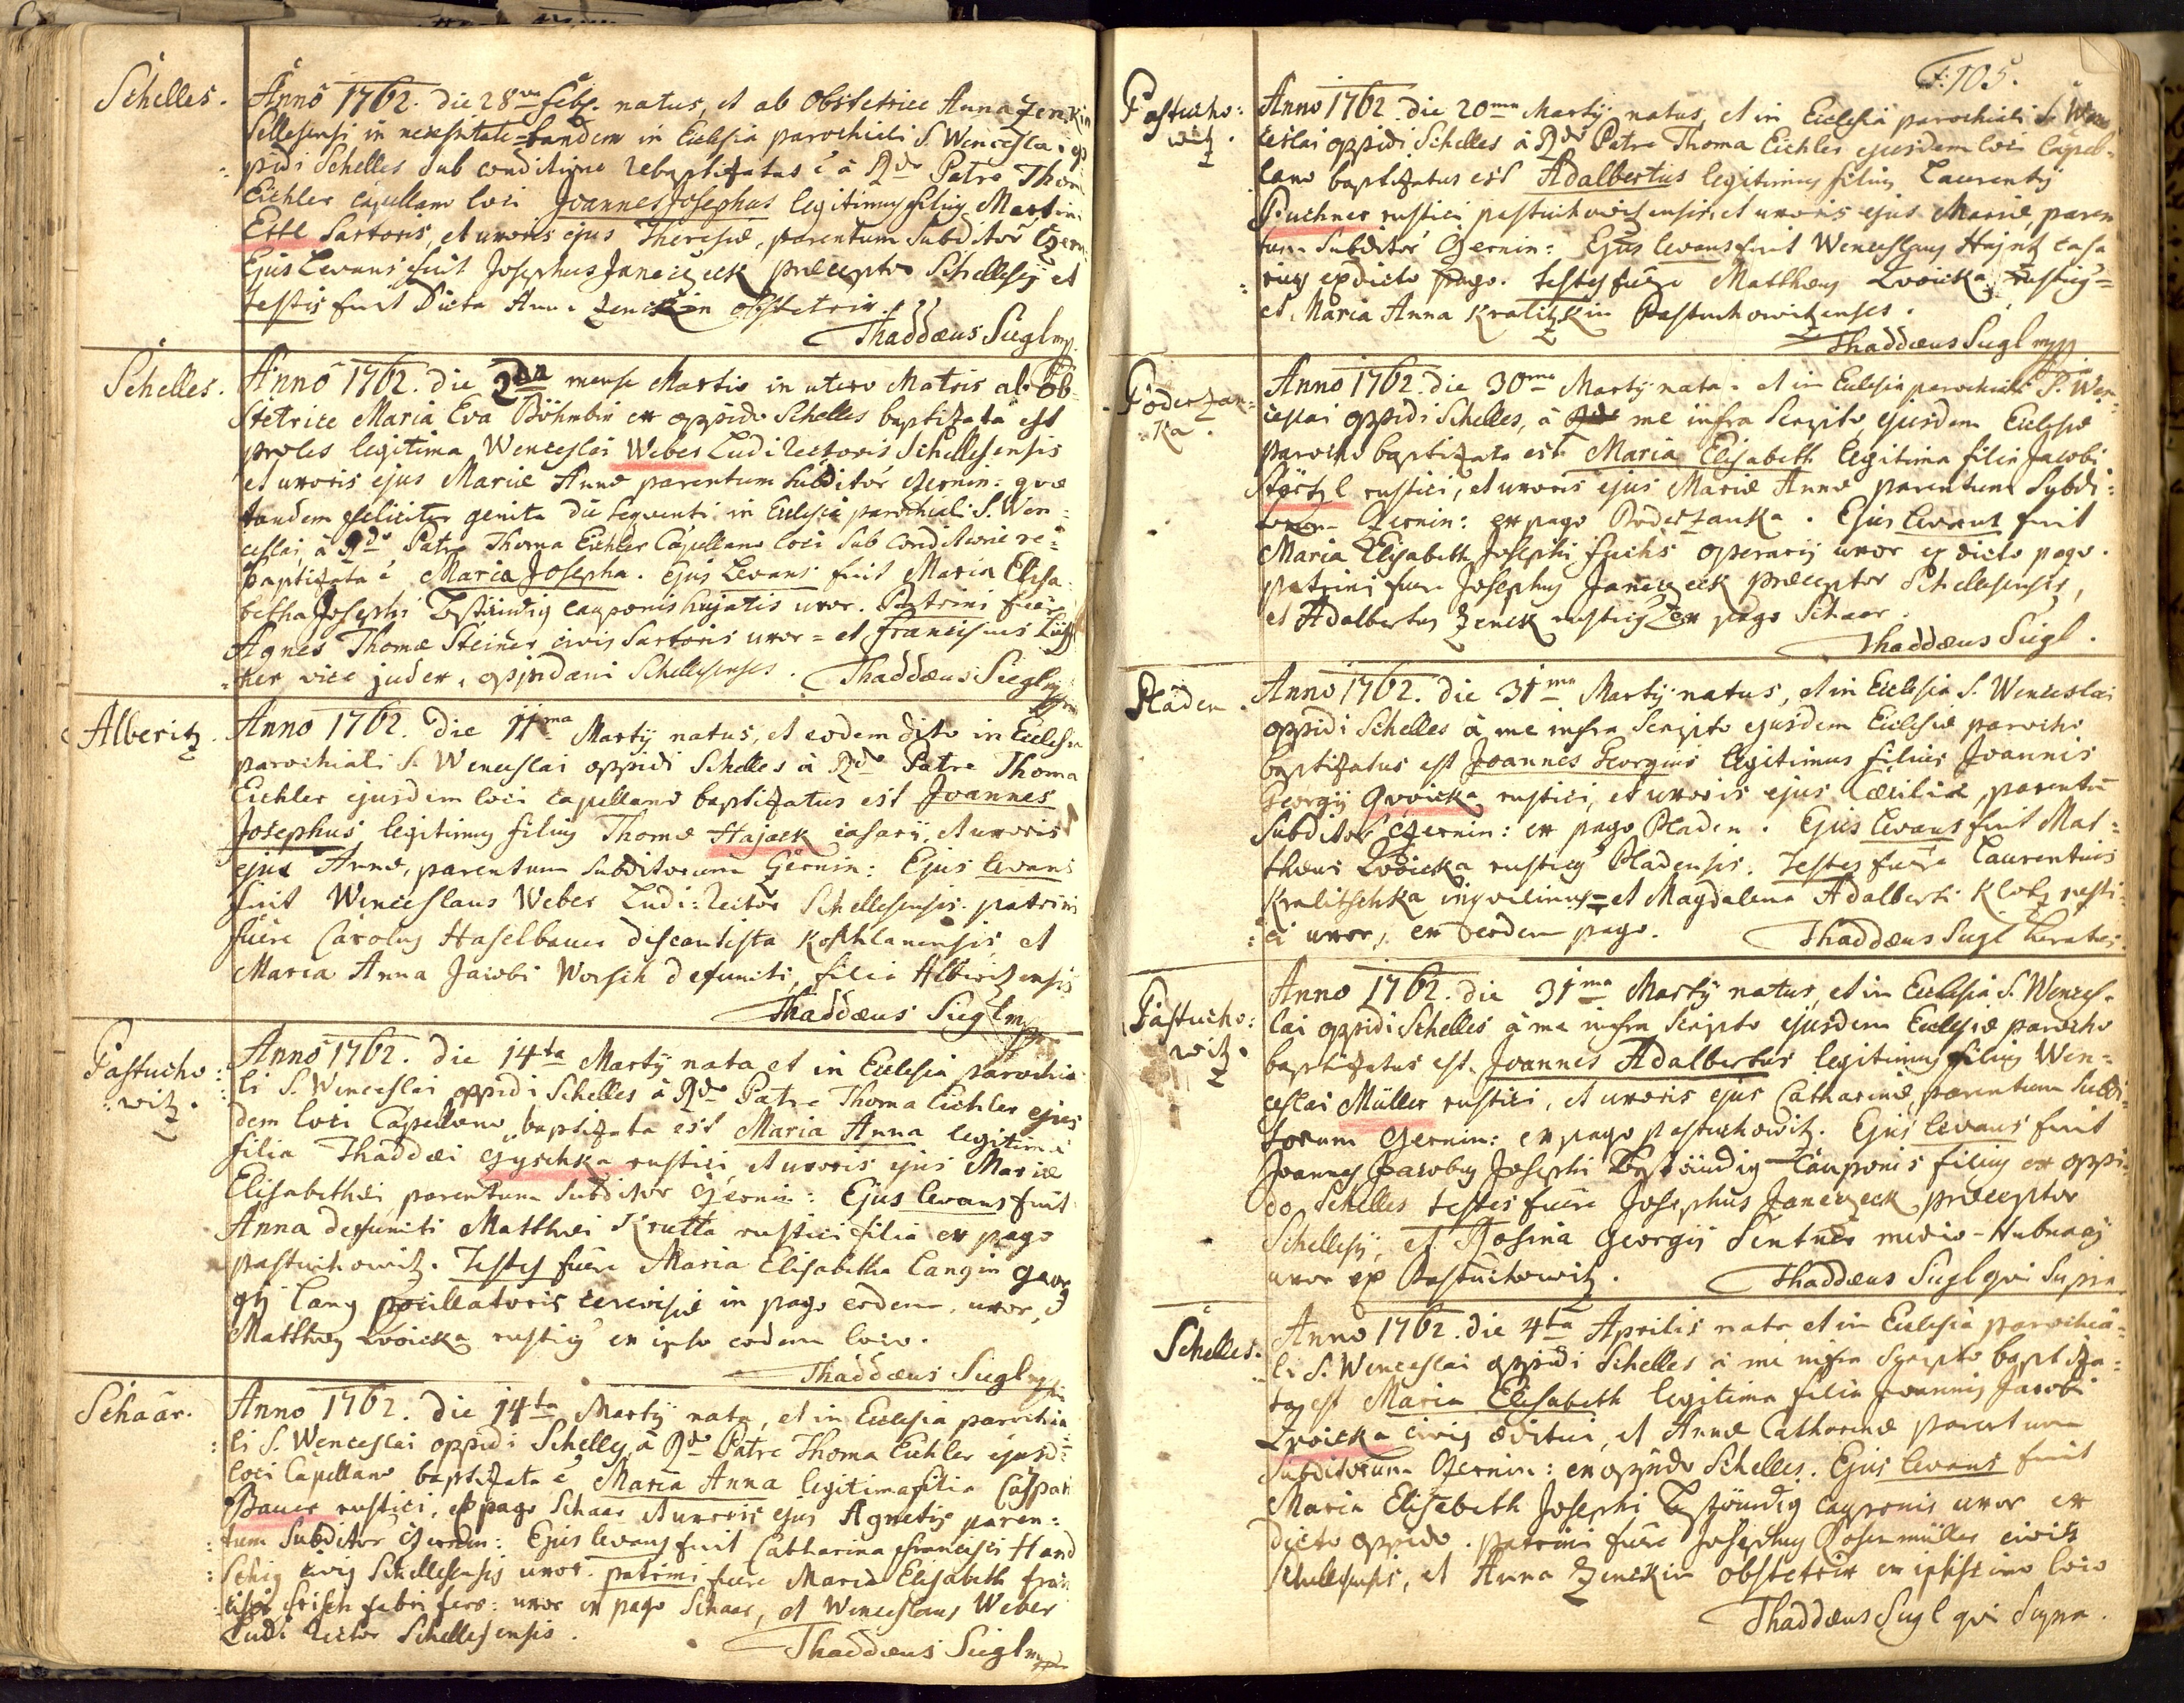 Schelles.
Anno 1762. die 28va Febr. natus, et ab Obstetrice Anna Zenkin
Sellesensi in necessitate = tandem in Eclesia parochiali S. Wenceslai op
pidi Schelles sub conditione rebaptizatus ē à Rdo Patre Thom
Eichler Capellano loci Joannes Josephus legitimus filius Martini
Ertl Sartoris, et uxoris ejus Theresiæ, parentum Subditor̄ Czern:
Ejus Levans fuit Josephus Janeczeck præceptor Schellesis et
testis fuit Dicta Anna Zenckin obstetrix.
Thaddæus Siegl mp.
Schelles.
Anno 1762. die 2da mense Martio in utero Matris ab Ob
stetrice Maria Eva Böhmbin ex oppido Schelles baptizata est
proles legitima Wenceslai Weber Ludi rectoris Schellesensis
et uxoris ejus Mariæ Annæ parentum subditor̄ czernin: quæ
tandem feliciter genita die sequenti in Eclesia parochiali S. Wen=
ceslai à Rdo Patre Thoma Eichler Capellano loci sub conditione re=
baptizata ē Maria Josepha. Ejus Levans fuit Maria Elisa
betha Josephi cauponis hujatis uxor. Patrini fuere
Agnes Thomæ Steiner civis Sartoris uxor = et Franciscus
ker vice judex, oppidani Schellesenses. Thaddæus Siegl mp
Alberitz.
Anno 1762. die 11ma Martij natus, et eodem dito in Eclesia
parochiali S. Wenceslai oppidi Schelles à Rdo Patre Thoma
Eichler ejusdem loci capellano baptizatus est Joannes
Josephus legitimus filius Thomæ Hajack casarij, et uxoris
ejus Annæ, parentum subditorum Czernin: Ejus levans
fuit Wenceslaus Weber Ludi: Rector Schellesensis patrini
fuere Carolus Haselbauer discantista Koschlanensis et
Maria Anna Jacobi Worsch defuncti, filia Albritzensis
Thaddæus Siegl mp
Pastucho=
witz.
Anno 1762. die 14ta Martij nata et in Eclesia parochia
li S. Wenceslai oppidi Schelles à Rdo Patre Thoma Eichler ejus
dem loci Capellano baptizata est Maria Anna legitima
filia Thaddæi Gyschka rustici, et uxoris ejus Mariæ
Elisabethæ parentum subditor̄ Czernin: Ejus levans fuit
Anna defuncti Matthæi Krutta rustici filia ex pago
Pastuchowitz. Testes fuere Maria Elisabetha Langin Geor
gij Lang pocillatoris cerevisiæ in pago eodem, uxor, et
Matthæus Zwicka rusticus ex ipso eodem loco.
Thaddæus Siegl mp
Schaar.
Anno 1762. die 14ta Martij nata, et in Eclesia parochia
li S. Wenceslai oppidi Schelles, à Rdo Patre Thoma Eichler ejusd:
loci Capellano baptizata ē Maria Anna legitima filia Caspari
Bauer rustici, ex pago Schaar et uxoris ejus Agnetis paren:
tum Subditor̄ Czernin: Ejus levans fuit Catharina Francisci Hand
schig civis Schellesensis uxor. patrini fuere Maria Elisabeth Fran
cisci Frisch fabri fero: uxor ex pago Schaar, et Wenceslaus Weber
Ludi Rector Schellesensis.
Thaddæus Siegl mp
f: 105.
Pastucho:
witz.
Anno 1762. die 20ma Martij natus, et in Eclesia parochiali S. Wen
ceslai oppidi Schelles à Rdo Patre Thoma Eichler ejusdem loci Capel=
lano baptizatus est Adalbertus legitimus filius Laurentij
Puchner rustici pastuchowitzensis, et uxoris ejus Mariæ, paren
tum Subditor̄ Czernin: Ejus levans fuit Wenceslaus Hajntz casa
rius ex dicto pago. testes fuere Matthæus Zwicka rusticus =
et Maria Anna Kralitzkin Pastuchowitzenses.
Thaddæus Siegl mpp
Poderzan=
ka.
Anno 1762. die 30ma Martij nata, et in Eclesia parochiali S. Wen
ceslai oppidi Schelles, à me infra scripto ejusdem Eclesiæ
parocho baptizata est Maria Elisabeth legitima filia Jacobi
Störtzl rustici, et uxoris ejus Mariæ Annæ parentum Subdi=
torum Czernin: ex pago Poderzanka. Ejus levans fuit
Maria Elisabeth Josephi Fuchs operarij uxor ex dicto pago.
patrini fuere Josephus Janeczeck præceptor Schellesensis,
et Adalbertus Zenck rusticus ex pago Schaar.
Thaddæus Siegl.
Pladen.
Anno 1762. die 31ma Martij natus, et in Eclesia S. Wenceslai
oppidi Schelles à me infra scripto ejusdem Eclesiæ parocho
baptizatus est Joannes Georgius legitimus filius Joannis
Georgij Qwicka rustici, et uxoris ejus Cæciliæ, parentū
subditor̄ Czernin: ex pago Pladen. Ejus levans fuit Mat=
thæus Zwicka rusticus Pladensis. Testes fuere Laurentius
Kralitschka inqvilinus = et Magdalena Adalberti Klotz rusti=
ci uxor, ex eodem pago. Thaddæus Siegl Curatus.
Pastucho:
witz.
Anno 1762. die 31ma Martij natus, et in Eclesia S. Wences=
lai oppidi Schelles à me infra scripto ejusdem Eclesiæ parocho
baptizatus est Joannes Adalbertus legitimus filius Wen=
ceslai Müller rustici, et uxoris ejus Catharinæ, parentum subdi=
torum Czernin: ex pago Pastuchowitz. Ejus levans fuit
Joannes Jacobus Josephi Cauponis filius ex oppi
do Schelles testes fuere Josephus Janeczeck præceptor
Schellesis, et Rosina Georgij Sentner medio-Hubnarij
uxor ex Pastuchowitz. Thaddæus Siegl qui supra
Schelles.
Anno 1762. die 4ta Aprilis nata et in Eclesia parochia=
li S. Wenceslai oppidi Schelles à me infra scripto baptiza=
ta est Maria Elisabeth legitima filia Joannis Jacobi
Zwicka civis æditui, et Annæ Catharinæ parentum
subditorum Czernin: ex oppido Schelles. Ejus levans fuit
Maria Elisabeth Josephi cauponis uxor ex
dicto oppido. patrini fuere Josephus Rosenmüller civis
Schellesensis, et Anna Zenckin obstetrix ex ipsissimo loco
Thaddæus Siegl qui Supra.